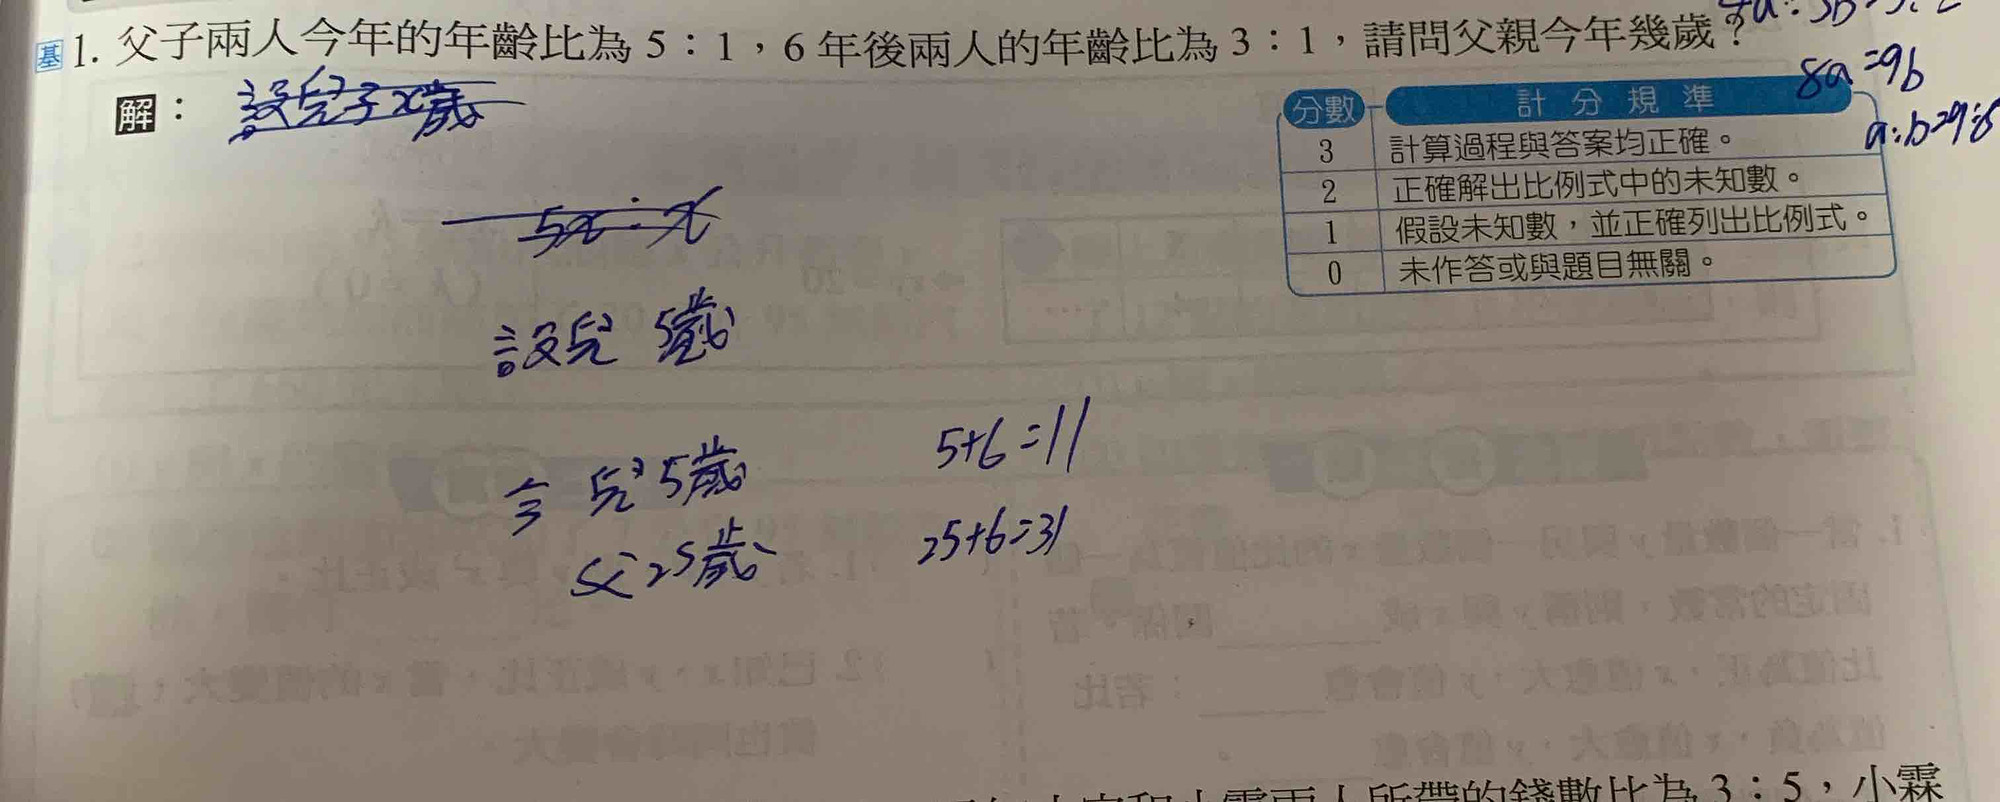 基 1. 父子兩人今年的年齡比為 5：1，6 年後兩人的年齡比為 3：1，請問父親今年幾歲？
8a=9b
a:b=9:8
解：
設兒子x歲
5x:x
設兒 5歲
今 兒5歲 5+6=11
父25歲 25+6=31
分數 計分規準
3 計算過程與答案均正確。
2 正確解出比例式中的未知數。
1 假設未知數，並正確列出比例式。
0 未作答或與題目無關。
兩人所帶的錢數比為 3：5，小霖